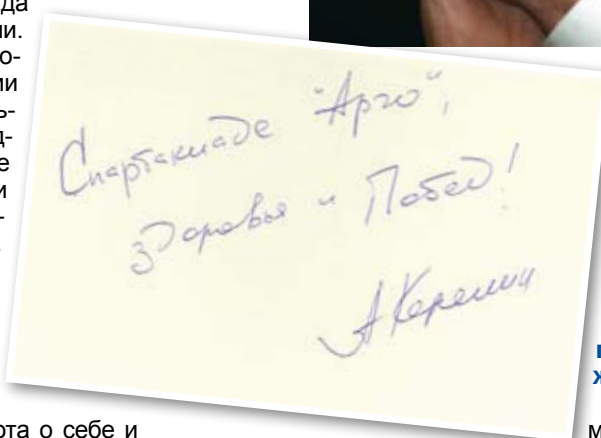 да
о-
ми
ь-
д-
е
и
-
Спартакиаде "Арго",
здоровья и Побед!
А Карелин
ж
ота о себе и
м